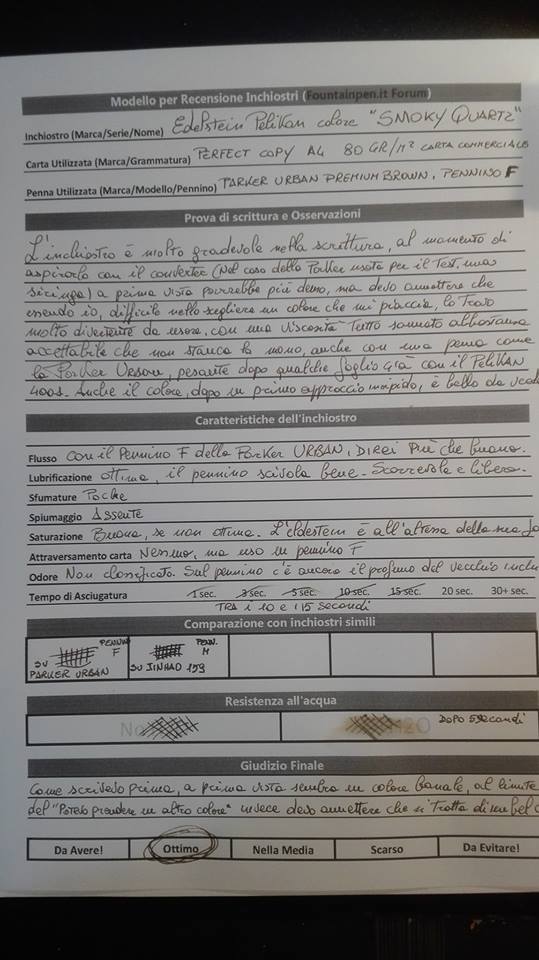 Modello per Recensione Inchiostri (Fountainpen.it Forum)
Inchiostro (Marca/Serie/Nome) Edelstein Pelikan colore "SMOKY QUARTZ"
Carta Utilizzata (Marca/Grammatura) PERFECT COPY A4 80 GR/M² CARTA COMMERCIALE
Penna Utilizzata (Marca/Modello/Pennino) PARKER URBAN PREMIUM BROWN, PENNINO F
Prova di scrittura e Osservazioni
L'inchiostro è molto gradevole nella scrittura, al momento di
aspirarlo con il converter (Nel caso della Parker usata per il test, una
siringa) a prima vista potrebbe più denso, ma devo ammettere che
essendo io, difficile nello scegliere un colore che mi piaccia, lo trovo
molto divertente da usare, con una viscosità tutto sommato abbastanza
accettabile che non stanca la mano, anche con una penna come
la Parker Urban, pesante dopo qualche foglio già con il Pelikan
400s. Anche il colore, dopo un primo approccio insipido, è bello da
Caratteristiche dell'inchiostro
Flusso Con il Pennino F della Parker URBAN, DIREI Più che buono.
Lubrificazione ottima, il pennino scivola bene. Scorrevole e libero.
Sfumature Poche
Spiumaggio Assente
Saturazione Buona, se non ottima. L'Eldestein è all'altezza della sua
Attraversamento carta Nessuno, ma uso un pennino F
Odore Non classificato. Sul pennino c'è ancora il profumo del vecchio
Tempo di Asciugatura 1 sec. 3 sec. 5 sec. 10 sec. 15 sec. 20 sec. 30+ sec.
TRA i 10 e i 15 secondi
Comparazione con inchiostri simili
PENNINO F PENN. M
SU PARKER URBAN SU JINHAO 159
Resistenza all'acqua
No H2O DOPO 5 secondi
Giudizio Finale
Come scrivevo prima, a prima vista sembra un colore banale, al limite
del "Potevo prendere un altro colore" invece devo ammettere che si tratta di un bel
Da Avere! Ottimo Nella Media Scarso Da Evitare!